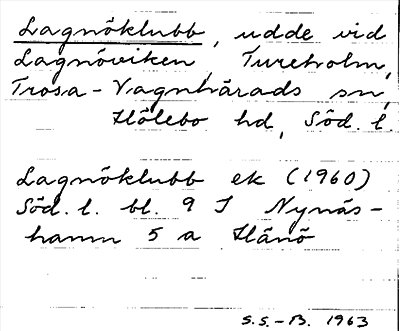 Lagnöklubb, udde vid
Lagnöviken, Tureholm,
Trosa-Vagnhärads sn,
Hölebo hd, Söd. l.
Lagnöklubb ek (1960)
Söd. l. bl. 9 I Nynäs-
hamn 5 a Hånö
S.S.-B. 1963